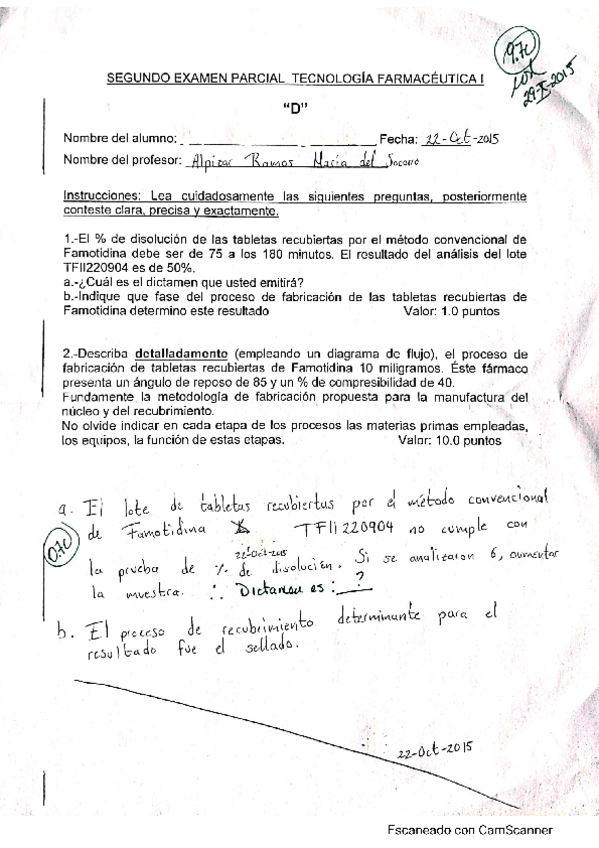 9.70
29-X-2015
SEGUNDO EXAMEN PARCIAL TECNOLOGÍA FARMACÉUTICA I
"D"
Nombre del alumno: Fecha: 22-Oct-2015
Nombre del profesor: Alpizar Ramos María del Socorro
Instrucciones: Lea cuidadosamente las siguientes preguntas, posteriormente
conteste clara, precisa y exactamente.
1.-El % de disolución de las tabletas recubiertas por el método convencional de
Famotidina debe ser de 75 a los 180 minutos. El resultado del análisis del lote
TFII220904 es de 50%.
a.-¿Cuál es el dictamen que usted emitirá?
b.-Indique que fase del proceso de fabricación de las tabletas recubiertas de
Famotidina determino este resultado Valor: 1.0 puntos
2.-Describa detalladamente (empleando un diagrama de flujo), el proceso de
fabricación de tabletas recubiertas de Famotidina 10 miligramos. Éste fármaco
presenta un ángulo de reposo de 85 y un % de compresibilidad de 40.
Fundamente la metodología de fabricación propuesta para la manufactura del
núcleo y del recubrimiento.
No olvide indicar en cada etapa de los procesos las materias primas empleadas,
los equipos, la función de estas etapas. Valor: 10.0 puntos
a. El lote de tabletas recubiertas por el método convencional
de Famotidina TFII220904 no cumple con
0.70
22-Oct-2015
la prueba de % de disolución. Si se analizaron 6, aumentar
la muestra. ∴ Dictamen es: ?
b. El proceso de recubrimiento determinante para el
resultado fue el sellado.
22-Oct-2015
Escaneado con CamScanner